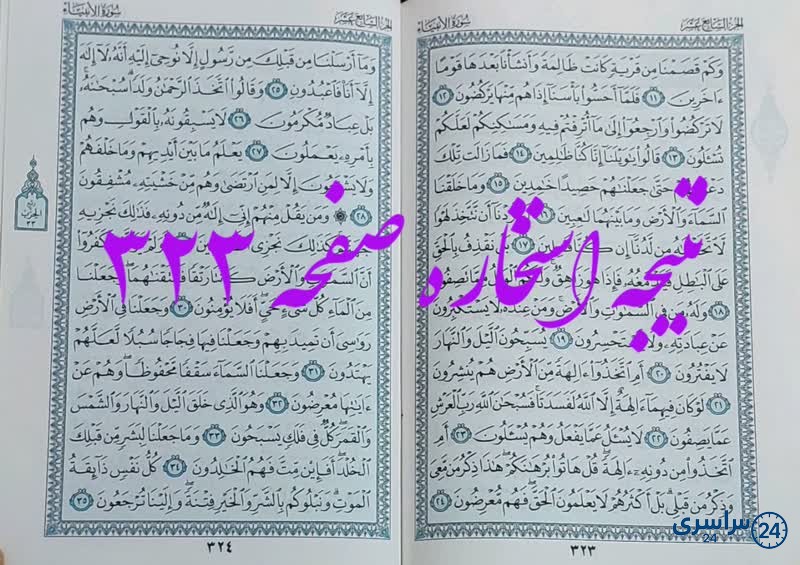 الجزء السابع عشر
سورة الأنبياء
وَكَمْ قَصَمْنَا مِن قَرْيَةٍ كَانَتْ ظَالِمَةً وَأَنشَأْنَا بَعْدَهَا قَوْمًا
ءَاخَرِينَ ١١ فَلَمَّآ أَحَسُّوا۟ بَأْسَنَآ إِذَا هُم مِّنْهَا يَرْكُضُونَ ١٢
لَا تَرْكُضُوا۟ وَٱرْجِعُوٓا۟ إِلَىٰ مَآ أُتْرِفْتُمْ فِيهِ وَمَسَٰكِنِكُمْ لَعَلَّكُمْ
تُسْـَٔلُونَ ١٣ قَالُوا۟ يَٰوَيْلَنَآ إِنَّا كُنَّا ظَٰلِمِينَ ١٤ فَمَا زَالَت تِّلْكَ
حَتَّىٰ جَعَلْنَٰهُمْ حَصِيدًا خَٰمِدِينَ ١٥ وَمَا خَلَقْنَا
ٱلسَّمَآءَ وَٱلْأَرْضَ وَمَا بَيْنَهُمَا لَٰعِبِينَ ١٦ أَن نَّتَّخِذَ لَهْوًا
مِن لَّدُنَّآ إِن ١٧ نَقْذِفُ بِٱلْحَقِّ
عَلَى ٱلْبَٰطِلِ فَإِذَا هُوَ
١٨ وَلَهُۥ مَن فِى ٱلسَّمَٰوَٰتِ وَٱلْأَرْضِ وَمَنْ عِندَهُۥ لَا يَسْتَكْبِرُونَ
عَنْ عِبَادَتِهِۦ وَلَا يَسْتَحْسِرُونَ ١٩ يُسَبِّحُونَ ٱلَّيْلَ وَٱلنَّهَارَ
لَا يَفْتُرُونَ ٢٠ أَمِ ٱتَّخَذُوٓا۟ ءَالِهَةً مِّنَ ٱلْأَرْضِ هُمْ يُنشِرُونَ
٢١ لَوْ كَانَ فِيهِمَآ ءَالِهَةٌ إِلَّا ٱللَّهُ لَفَسَدَتَا فَسُبْحَٰنَ ٱللَّهِ رَبِّ ٱلْعَرْشِ
عَمَّا يَصِفُونَ ٢٢ لَا يُسْـَٔلُ عَمَّا يَفْعَلُ وَهُمْ يُسْـَٔلُونَ ٢٣ أَمِ
ٱتَّخَذُوا۟ مِن دُونِهِۦٓ ءَالِهَةً قُلْ هَاتُوا۟ بُرْهَٰنَكُمْ هَٰذَا ذِكْرُ مَن مَّعِىَ
وَذِكْرُ مَن قَبْلِى بَلْ أَكْثَرُهُمْ لَا يَعْلَمُونَ ٱلْحَقَّ فَهُم مُّعْرِضُونَ ٢٤
٣٢٣
الجزء السابع عشر
سورة الأنبياء
وَمَآ أَرْسَلْنَا مِن قَبْلِكَ مِن رَّسُولٍ إِلَّا نُوحِىٓ إِلَيْهِ أَنَّهُۥ لَآ إِلَٰهَ
إِلَّآ أَنَا۠ فَٱعْبُدُونِ ٢٥ وَقَالُوا۟ ٱتَّخَذَ ٱلرَّحْمَٰنُ وَلَدًا سُبْحَٰنَهُۥ
بَلْ عِبَادٌ مُّكْرَمُونَ ٢٦ لَا يَسْبِقُونَهُۥ بِٱلْقَوْلِ وَهُم
بِأَمْرِهِۦ يَعْمَلُونَ ٢٧ يَعْلَمُ مَا بَيْنَ أَيْدِيهِمْ وَمَا خَلْفَهُمْ
وَلَا يَشْفَعُونَ إِلَّا لِمَنِ ٱرْتَضَىٰ وَهُم مِّنْ خَشْيَتِهِۦ مُشْفِقُونَ
٢٨ وَمَن يَقُلْ مِنْهُمْ إِنِّىٓ إِلَٰهٌ مِّن دُونِهِۦ فَذَٰلِكَ نَجْزِيهِ
كَذَٰلِكَ نَجْزِى كَفَرُوٓا۟
أَنَّ ٱلسَّمَٰوَٰتِ وَٱلْأَرْضَ كَانَتَا رَتْقًا فَفَتَقْنَٰهُمَا وَجَعَلْنَا
مِنَ ٱلْمَآءِ كُلَّ شَىْءٍ حَىٍّ أَفَلَا يُؤْمِنُونَ ٣٠ وَجَعَلْنَا فِى ٱلْأَرْضِ
رَوَٰسِىَ أَن تَمِيدَ بِهِمْ وَجَعَلْنَا فِيهَا فِجَاجًا سُبُلًا لَّعَلَّهُمْ
يَهْتَدُونَ ٣١ وَجَعَلْنَا ٱلسَّمَآءَ سَقْفًا مَّحْفُوظًا وَهُمْ عَنْ
ءَايَٰتِهَا مُعْرِضُونَ ٣٢ وَهُوَ ٱلَّذِى خَلَقَ ٱلَّيْلَ وَٱلنَّهَارَ وَٱلشَّمْسَ
وَٱلْقَمَرَ كُلٌّ فِى فَلَكٍ يَسْبَحُونَ ٣٣ وَمَا جَعَلْنَا لِبَشَرٍ مِّن قَبْلِكَ
ٱلْخُلْدَ أَفَإِي۟ن مِّتَّ فَهُمُ ٱلْخَٰلِدُونَ ٣٤ كُلُّ نَفْسٍ ذَآئِقَةُ
ٱلْمَوْتِ وَنَبْلُوكُم بِٱلشَّرِّ وَٱلْخَيْرِ فِتْنَةً وَإِلَيْنَا تُرْجَعُونَ ٣٥
٣٢٤
نتیجه استخاره صفحه ۳۲۳
سراسری 24
24